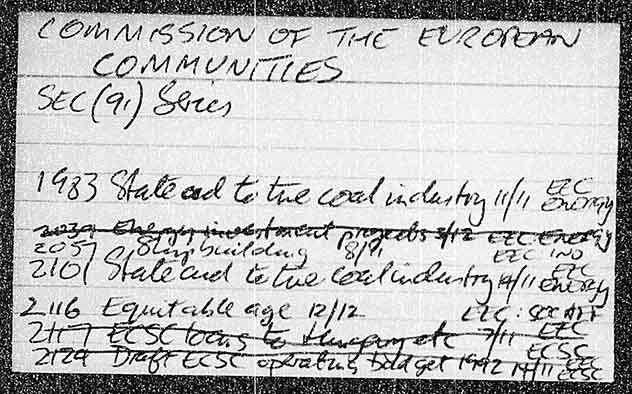 COMMISSION OF THE EUROPEAN
COMMUNITIES
SEC (91) Series
1983 State aid to the coal industry 11/11 EEC ENERGY
2039 Energy investment projects 3/12 EEC ENERGY
2057 Shipbuilding 8/11 EEC IND
2101 State aid to the coal industry 14/11 EEC ENERGY
2116 Equitable age 12/12 EEC: SOC AFF
2117 ECSC loans to Hungary etc 7/11 EEC ECSC
2129 Draft ECSC operating budget 1992 14/11 EEC ECSC